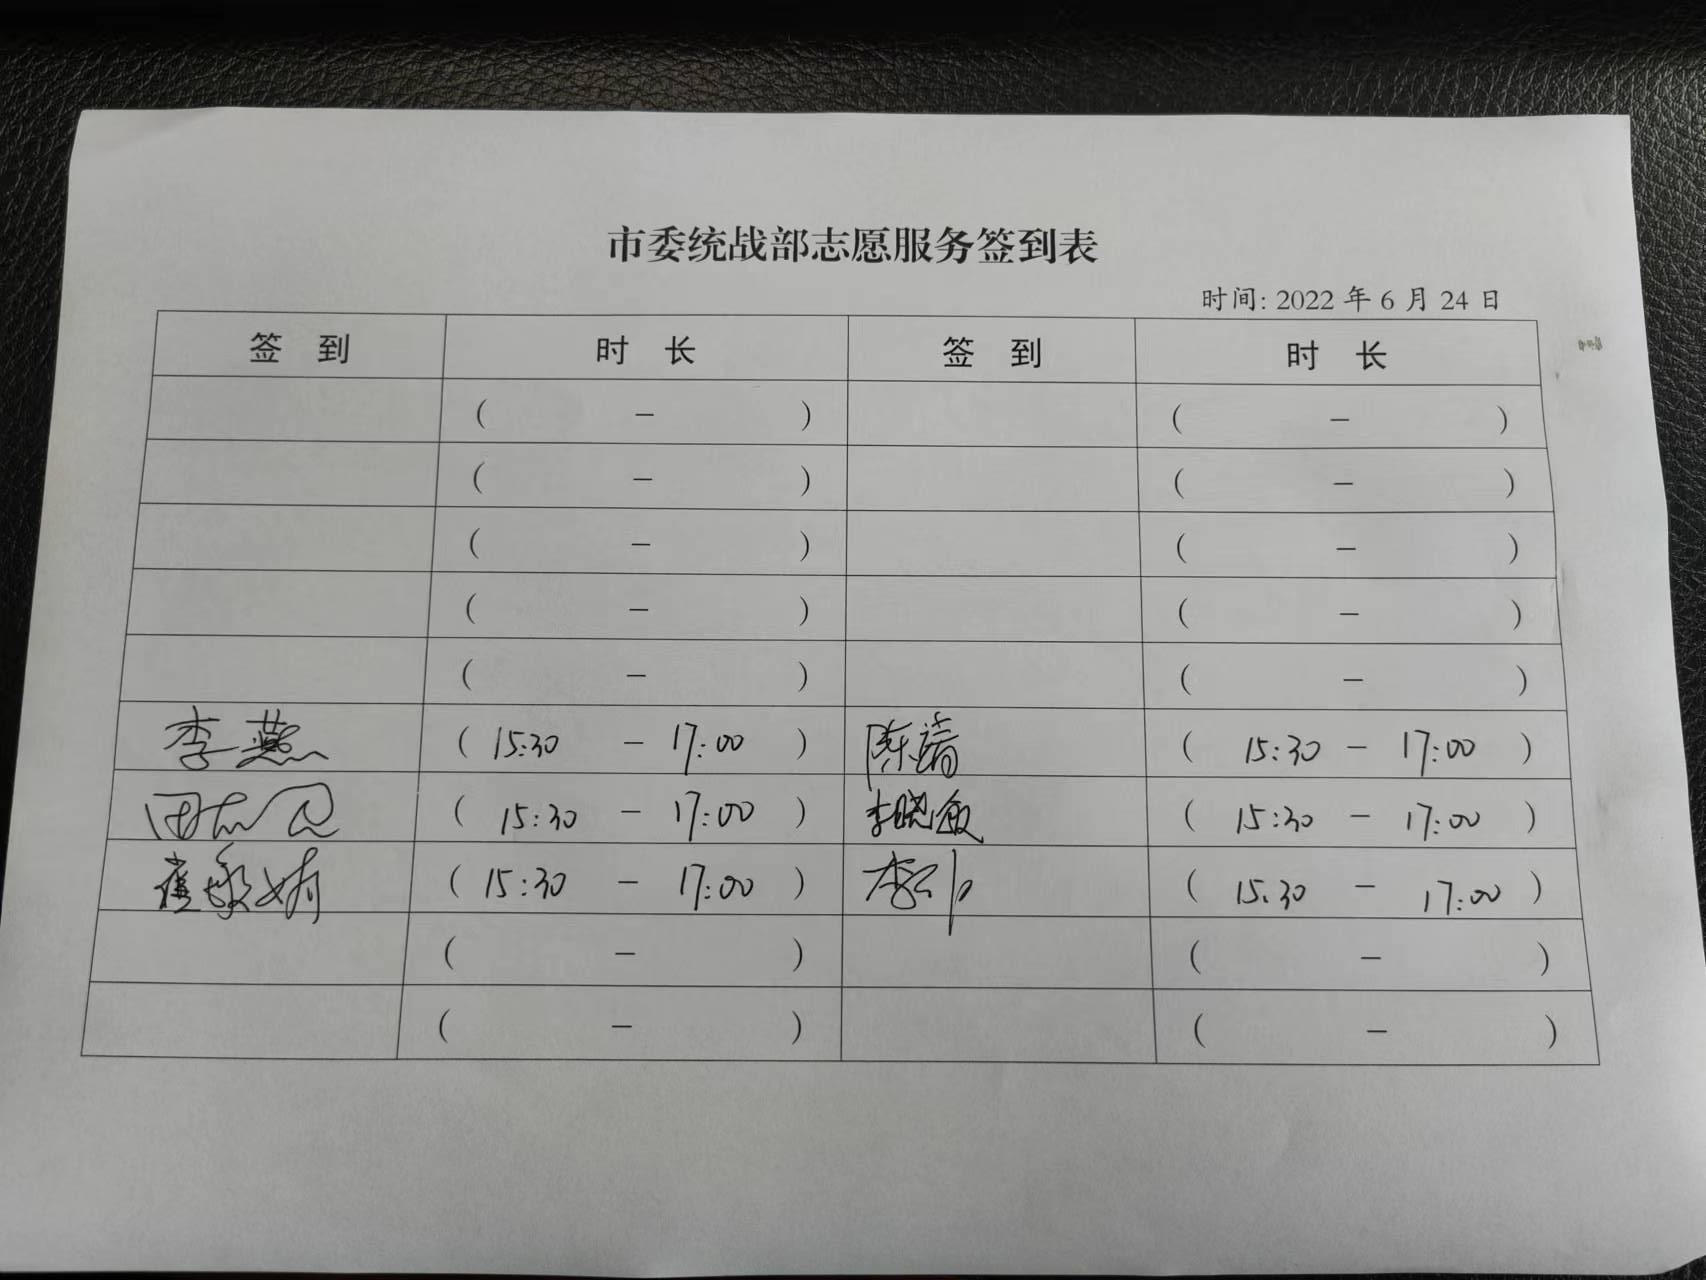 市委统战部志愿服务签到表
时间: 2022 年 6 月 24 日
签 到 时 长 签 到 时 长
( – ) ( – )
( – ) ( – )
( – ) ( – )
( – ) ( – )
( – ) ( – )
李燕 ( 15:30 – 17:00 ) 陈清 ( 15:30 – 17:00 )
田志 ( 15:30 – 17:00 ) 李晓敏 ( 15:30 – 17:00 )
崔敬婧 ( 15:30 – 17:00 ) 李 ( 15:30 – 17:00 )
( – ) ( – )
( – ) ( – )